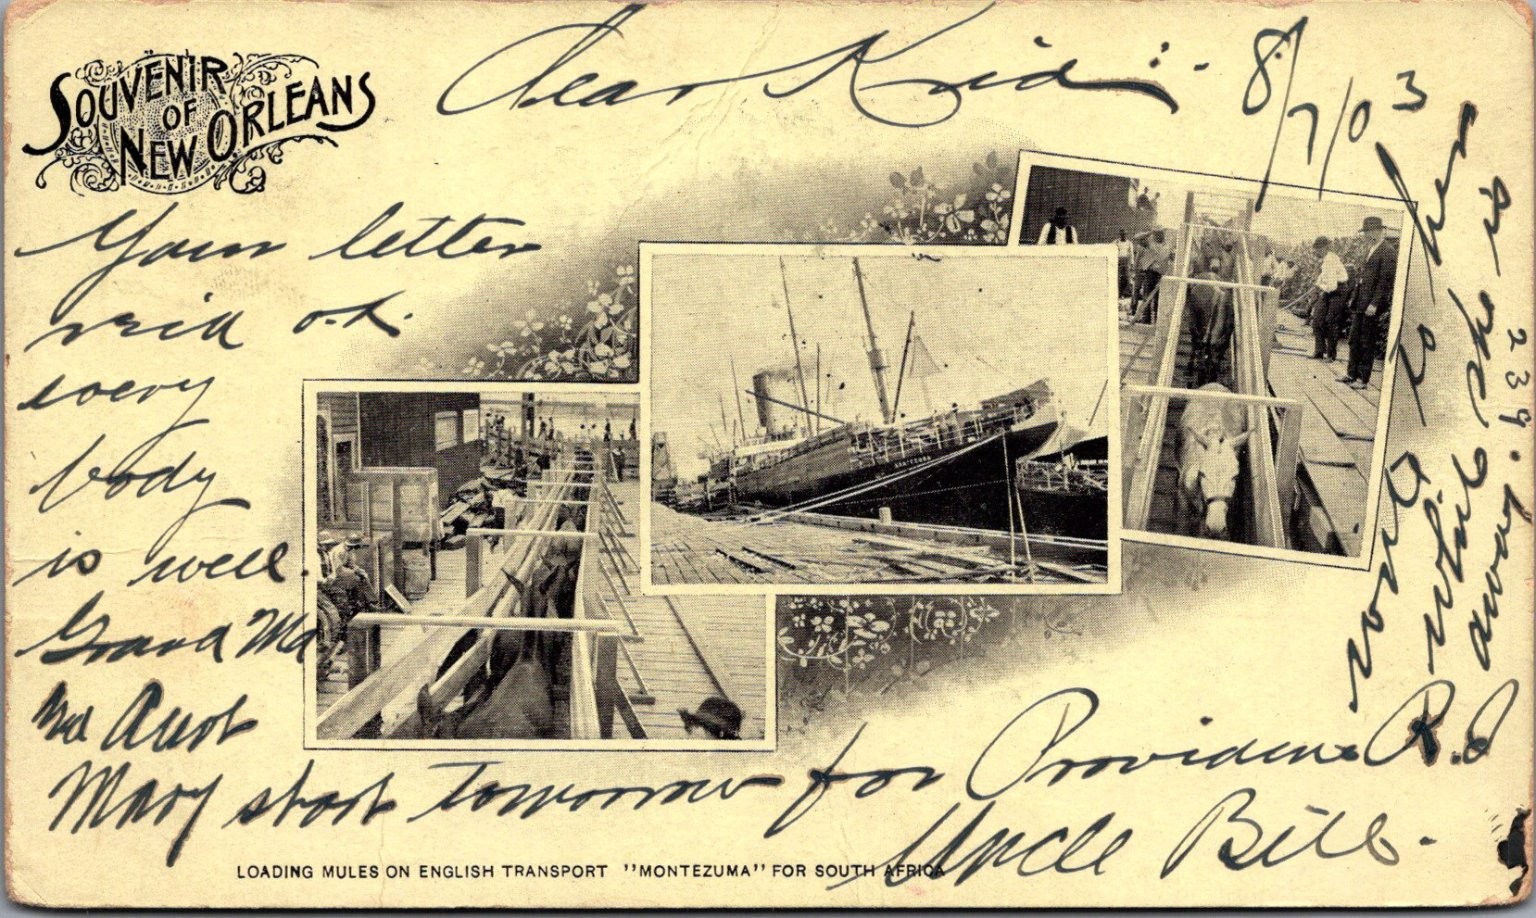 SOUVENIR
OF
NEW ORLEANS
Dear Kid :-
8/7/03
Your letter
rec'd o.k.
every
body
is well.
Grand Ma
and Aunt
Mary start tomorrow for Providence R.I
Uncle Bill.
write to her
while she is
away.
239.
MONTEZUMA
LOADING MULES ON ENGLISH TRANSPORT "MONTEZUMA" FOR SOUTH AFRICA